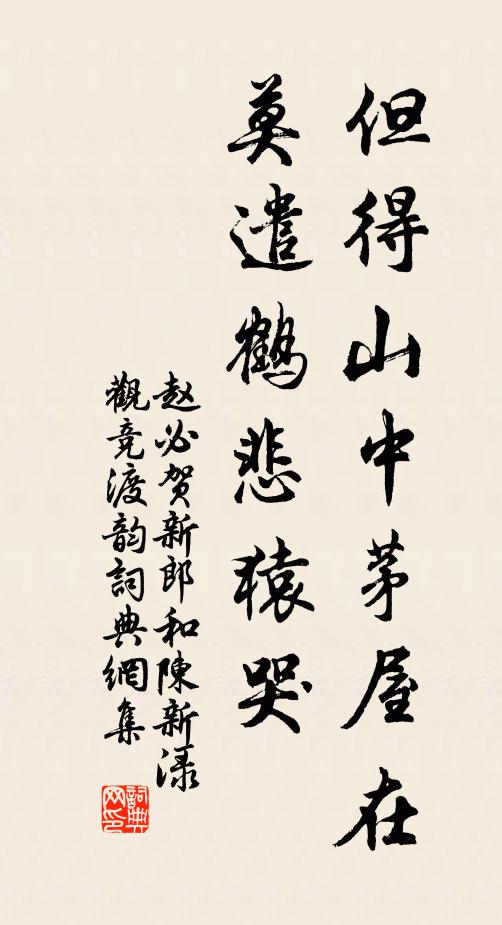 但得山中茅屋在
莫遣鹤悲猿哭
赵必贺新郎和陳新渌
觀竞渡韵詞典網集
詞典网印